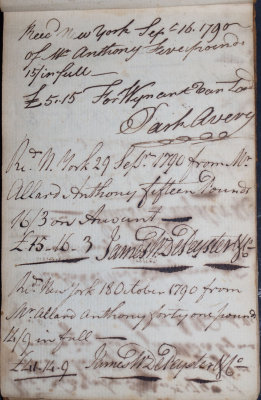 Recd New York Sept 16. 1790
of Mr Anthony Five pounds
15/ in full
£5.15 For Wynant Van
Avery
Rd. N. York 29 Sept. 1790 from Mr
Allard Anthony fifteen Pounds
16/3 on Account
£15.16.3 James W DePeyster & Co
Rd. New York 18 October 1790 from
Mr. Allard Anthony forty one pounds
14/9 in full
£41.14.9 James W DePeyster & Co